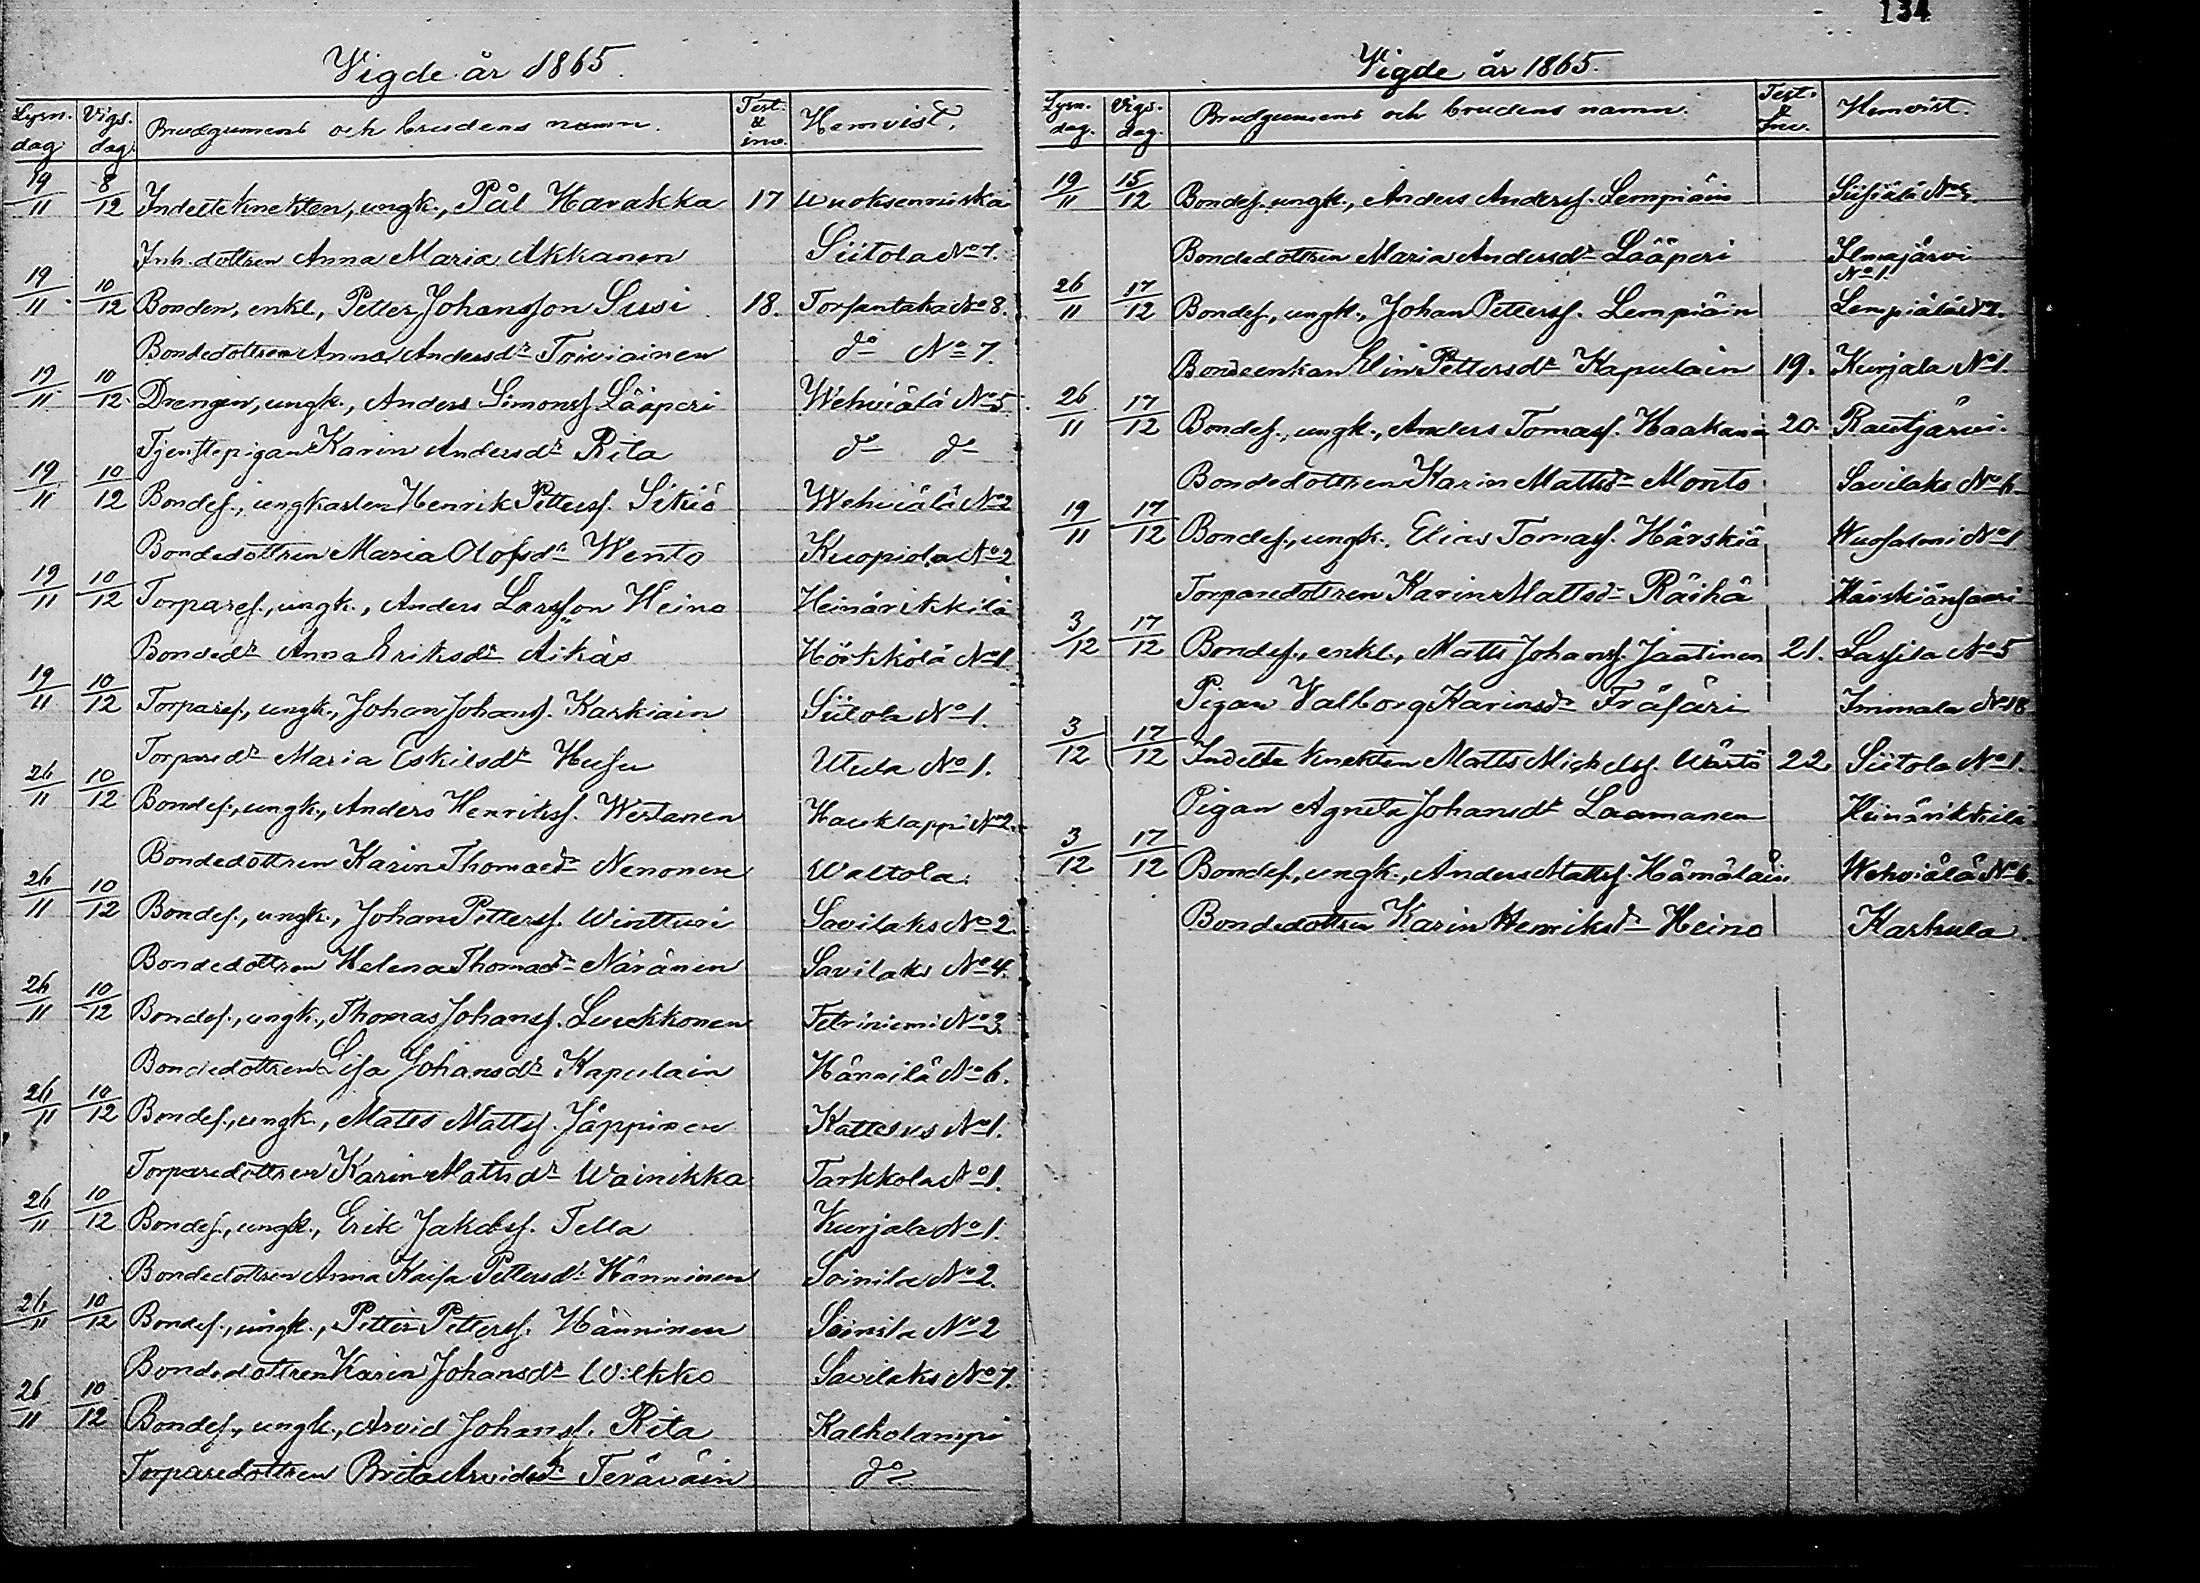 Vigde år 1865.
Lysn. dag. Vigs. dag. Brudgumens och brudens namn. Test. & inv. Hemvist.
19/11 8/12 Indelte knekten, ungk., Pål Harakka 17 Wuoksenniska
Inh. dottren Anna Maria Akkanen Siitola No 7.
19/11 10/12 Bonden, enkl., Petter Johansson Susi 18. Torsantaka No 8.
Bondedottren Anna Andersdr Toiviainen do No 7.
19/11 10/12 Drengen, ungk., Anders Simonss. Lääperi Wehviälä No 5.
Tjenstepigan Karin Andersdr Rita do do
19/11 10/12 Bondes., ungkarlen Henrik Petterss. Sikiö Wehviälä No 2
Bondedottren Maria Olofsdr Wento Kuopiola No 2
19/11 10/12 Torpares., ungk., Anders Larsson Heino Heinärikkilä
Bondedr Anna Eriksdr Aikäs Hörkkölä No 1
19/11 10/12 Torpares., ungk., Johan Johanss. Karkiain Siitola No 1.
Torparedr Maria Eskilsdr Husu Utula No 1.
26/11 10/12 Bondes., ungk., Anders Henrikss. Wertanen Hauklappi No 2.
Bondedottren Karin Thomasdr Nenonen Waltola.
26/11 10/12 Bondes., ungk., Johan Petterss. Wintturi Savilaks No 2.
Bondedottren Helena Thomasdr Näränen Savilaks No 4.
26/11 10/12 Bondes., ungk., Thomas Johanss. Luukkonen Tetriniemi No 3.
Bondedottren Lisa Johansdr Kapulain Hännilä No 6.
26/11 10/12 Bondes., ungk., Matts Mattss. Jäppinen Kattelus No 1.
Torparedottren Karin Mattsdr Wainikka Tarkkola No 1.
26/11 10/12 Bondes., ungk., Erik Jakobss. Tella Kurjala No 1.
Bondedottren Anna Kaisa Pettersdr Hänninen Soinila No 2.
26/11 10/12 Bondes., ungk., Petter Petterss. Hänninen Soinila No 2
Bondedottren Karin Johansdr Wilkko Savilaks No 7.
26/11 10/12 Bondes., ungk., Arvid Johanss. Rita Kalholampi
Torparedottren Brita Arvidsdr Teräväin do
134
Vigde år 1865.
Lysn. dag. Vigs. dag. Brudgumens och brudens namn. Test. & Inv. Hemvist.
19/11 15/12 Bondes. ungk., Anders Anderss. Lempiäin
Bondedottren Maria Andersdr Lääperi Ilmajärvi No 1.
26/11 17/12 Bondes., ungk., Johan Petterss. Lempiäin Lempiälä No
Bondeenkan Elin Pettersdr Kapulain 19. Kurjala No 1.
26/11 17/12 Bondes., ungk., Anders Tomass. Haakana 20. Rautjärvi.
Bondedottren Karin Mattsdr Monto Savilaks No 6
19/11 17/12 Bondes., ungk., Elias Tomass. Härskiä Wuosalmi No 1
Torparedottren Karin Mattsdr Räihä Härskiänsaari
3/12 17/12 Bondes., enkl., Matts Johanss. Jaatinen 21. Lassila No 5
Pigan Valborg Karinsdr Fräsäri Immala No 18
3/12 17/12 Indelte knekten Matts Mickelss. Wärtö 22. Siitola No 1.
Pigan Agneta Johansdr Laamanen Hiinärikkilä
3/12 17/12 Bondes., ungk., Anders Mattss. Hämäläin. Wehviälä No 6.
Bondedottren Karin Henriksdr Heino Karhula.